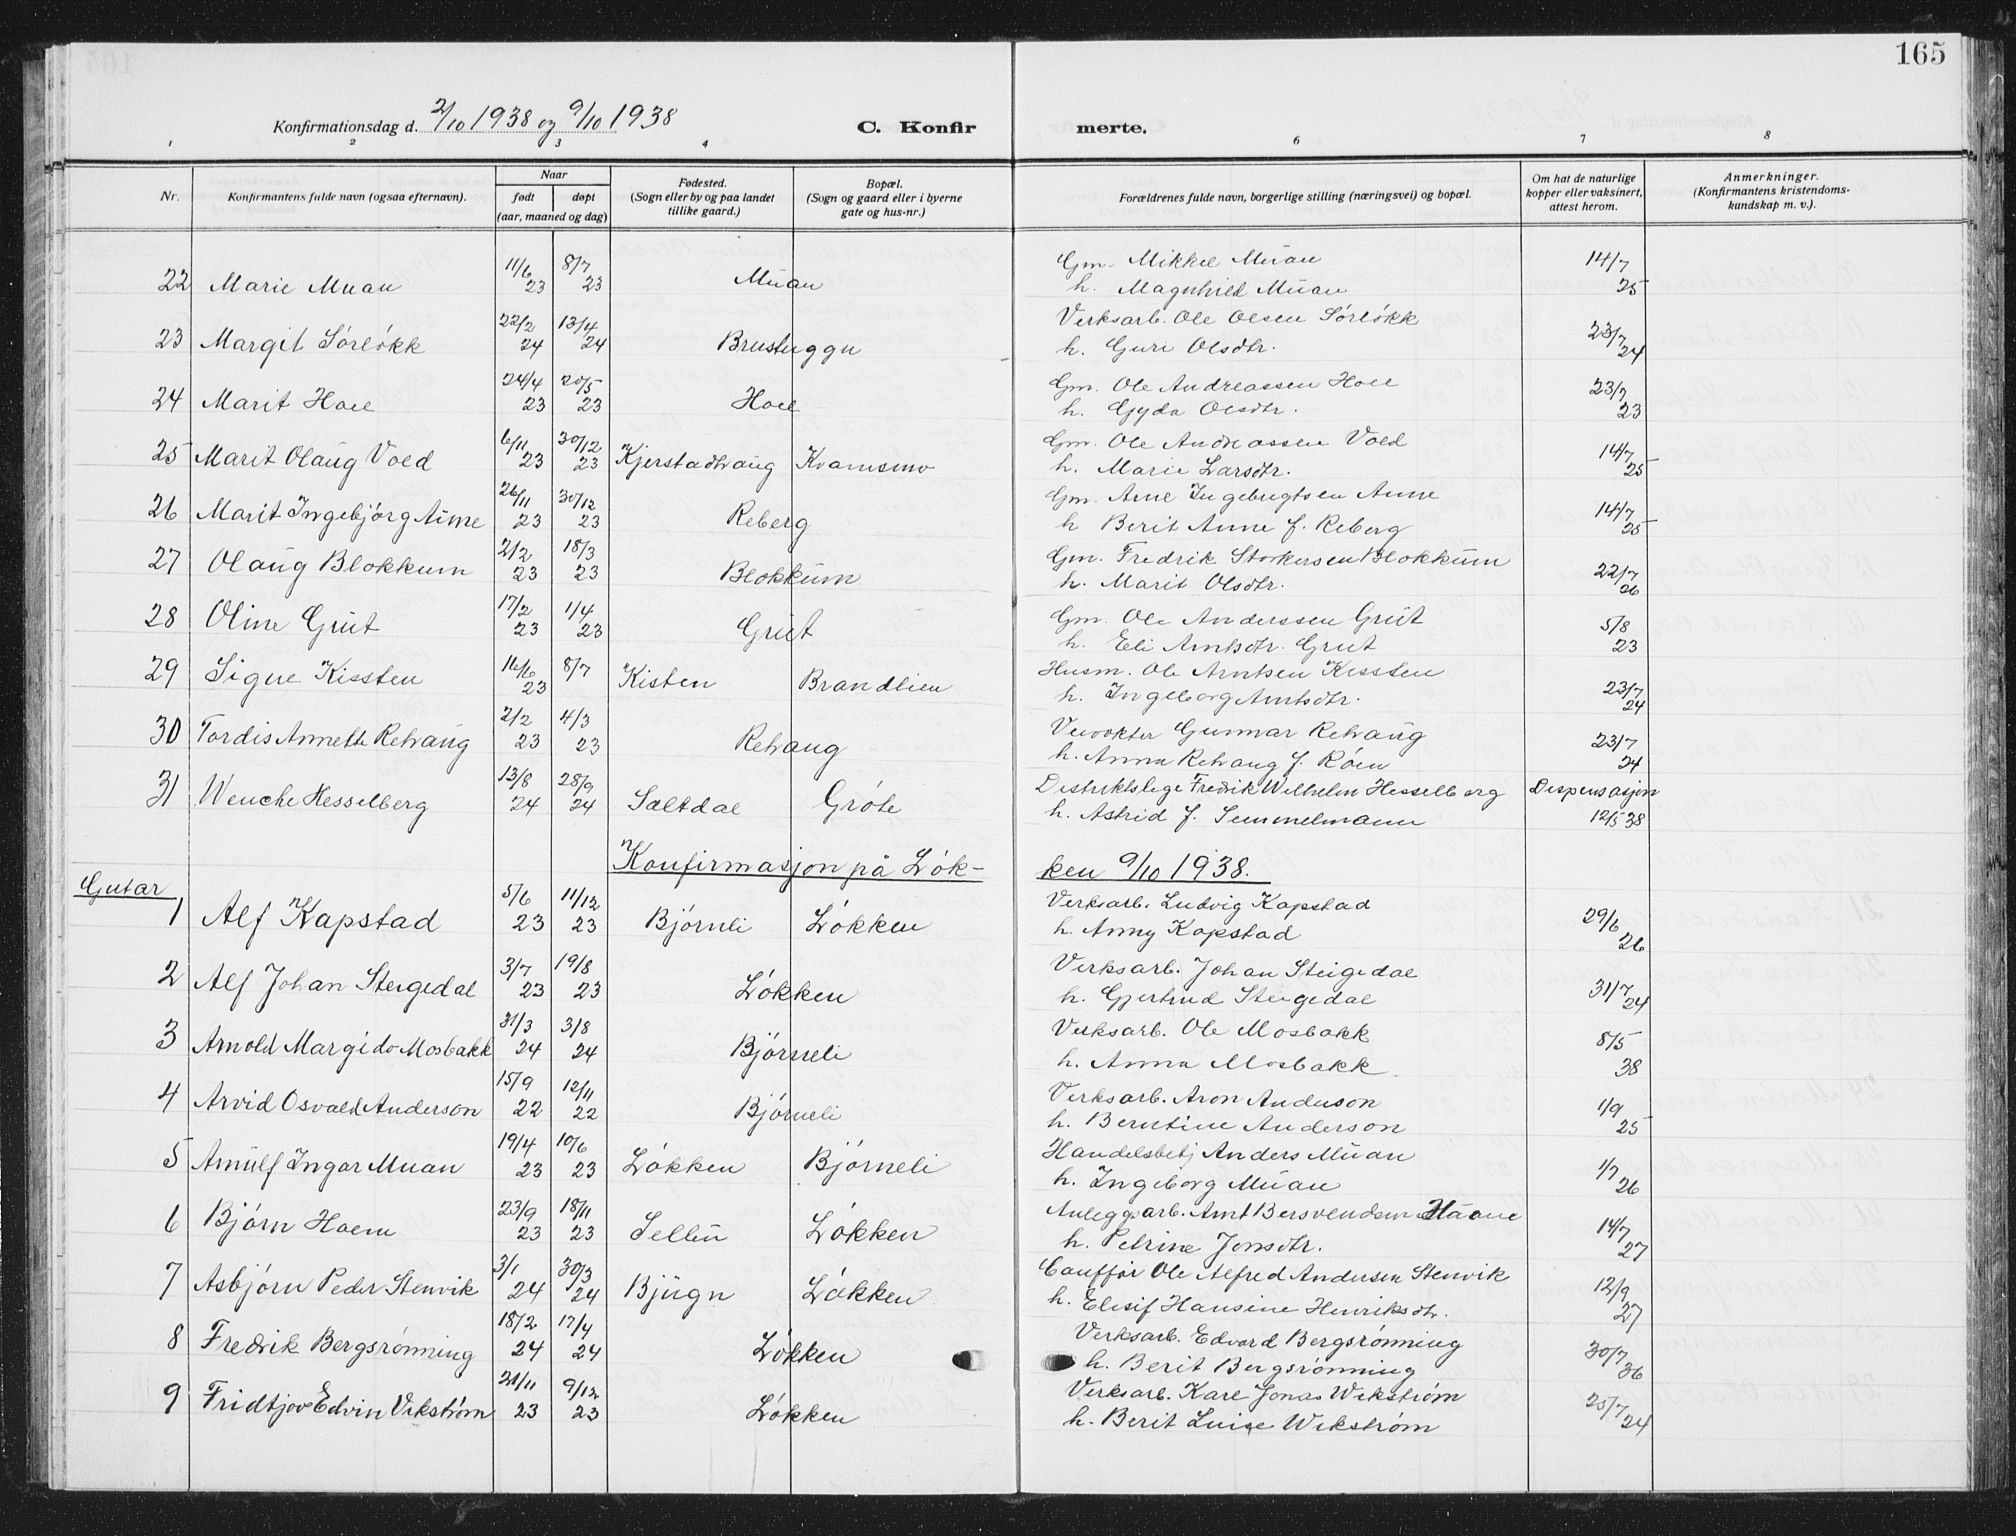 165
Konfirmationsdag d. 2/10 1938 og 9/10 1938 C. Konfirmerte.
1 2 3 4 6 7 8
Nr. Konfirmantens fulde navn (ogsaa efternavn). Naar født døpt (aar, maaned og dag) Fødested. (Sogn eller by og paa landet tillike gaard.) Bopæl. (Sogn og gaard eller i byerne gate og hus-nr.) Forældrenes fulde navn, borgerlige stilling (næringsvei) og bopæl. Om hat de naturlige kopper eller vaksinert, attest herom. Anmerkninger. (Konfirmantens kristendomskundskap m. v.).
22 Marie Muan 11/6 23 8/7 23 Muan Gm. Mikkel Muan 14/7 25
h. Magnhild Muan
23 Margit Sørløkk 22/2 24 13/4 24 Brustuggu Verksarb. Ole Olsen Sørløkk 23/7 24
h. Guri Olsdtr.
24 Marit Hoel 24/4 23 20/5 23 Hoel Gm. Ole Andreassen Hoel 23/7 23
h. Gyda Olsdtr.
25 Marit Olaug Vold 6/11 23 30/12 23 Kjerstadhaug Kvamsmo Gm. Ole Andreassen Vold 14/7 25
h. Marie Larsdtr.
26 Marit Ingebjørg Aune 26/11 23 30/12 23 Reberg Gm. Arne Ingebrigtsen Aune 14/7 25
h Berit Aune f. Reberg
27 Olaug Blokkum 2/2 23 18/3 23 Blokkum Gm. Fredrik Storkersen Blokkum 22/7 26
h. Marit Olsdtr.
28 Oline Grut 17/2 23 1/4 23 Grut Gm. Ole Anderssen Grut 5/8 23
h. Eli Arntsdtr. Grut
29 Signe Kissten 16/6 23 8/7 Kisten Brandlien Husm. Ole Arntsen Kissten 23/7 24
h. Ingeborg Arntsdtr.
30 Tordis Annette Rehaug 2/2 23 4/3 23 Rehaug Gunnar Rehaug 23/7 24
h. Anna Rehaug f. Røen
31 Wenche Hesselberg 13/8 24 28/9 24 Saltdal Grøte Distriktslege Fredrik Wilhelm Hesselberg Dispensasjon 12/5 38
h. Astrid f. Semmelmann
Konfirmasjon på Løkken 9/10 1938.
Gutar
1 Alf Kapstad 5/6 23 11/12 23 Bjørnli Løkken Verksarb. Ludvig Kapstad 29/6 26
h. Anny Kapstad
2 Alf Johan Steigedal 3/7 23 19/8 23 Løkken Verksarb. Johan Steigedal 31/7 24
h. Gjertrud Steigedal
3 Arnold Margido Mosbakk 31/3 24 3/8 24 Bjørneli Verksarb. Ole Mosbakk 8/5 38
h. Anna Mosbakk
4 Arvid Osvald Anderson 15/9 22 12/11 22 Bjørneli Verksarb. Aron Anderson 1/9 25
h. Berntine Anderson
5 Arnulf Ingar Muan 19/4 23 10/6 23 Løkken Bjørneli Handelsbetj Anders Muan 1/7 26
h. Ingeborg Muan
6 Bjørn Hoem 23/9 23 18/11 23 Løkken Anleggsarb. Arnt Bersvendsen 14/7 27
h. Petrine Jonsdtr.
7 Asbjørn Peder Stenvik 3/1 24 30/3 24 Bjugn Løkken Cauffør Ole Alfred Andersen Stenvik 12/9 27
h. Elisif Hansine Henriksdtr.
8 Fredrik Bergsrønning 18/2 24 17/4 24 Løkken Verksarb. Edvard Bergsrønning 30/7 36
h. Berit Bergsrønning
9 Fridtjov Edvin Vikstrøm 21/11 23 9/12 23 Løkken Verksarb. Karl Jonas Wikstrøm 25/7 24
h. Berit Luise Wikstrøm